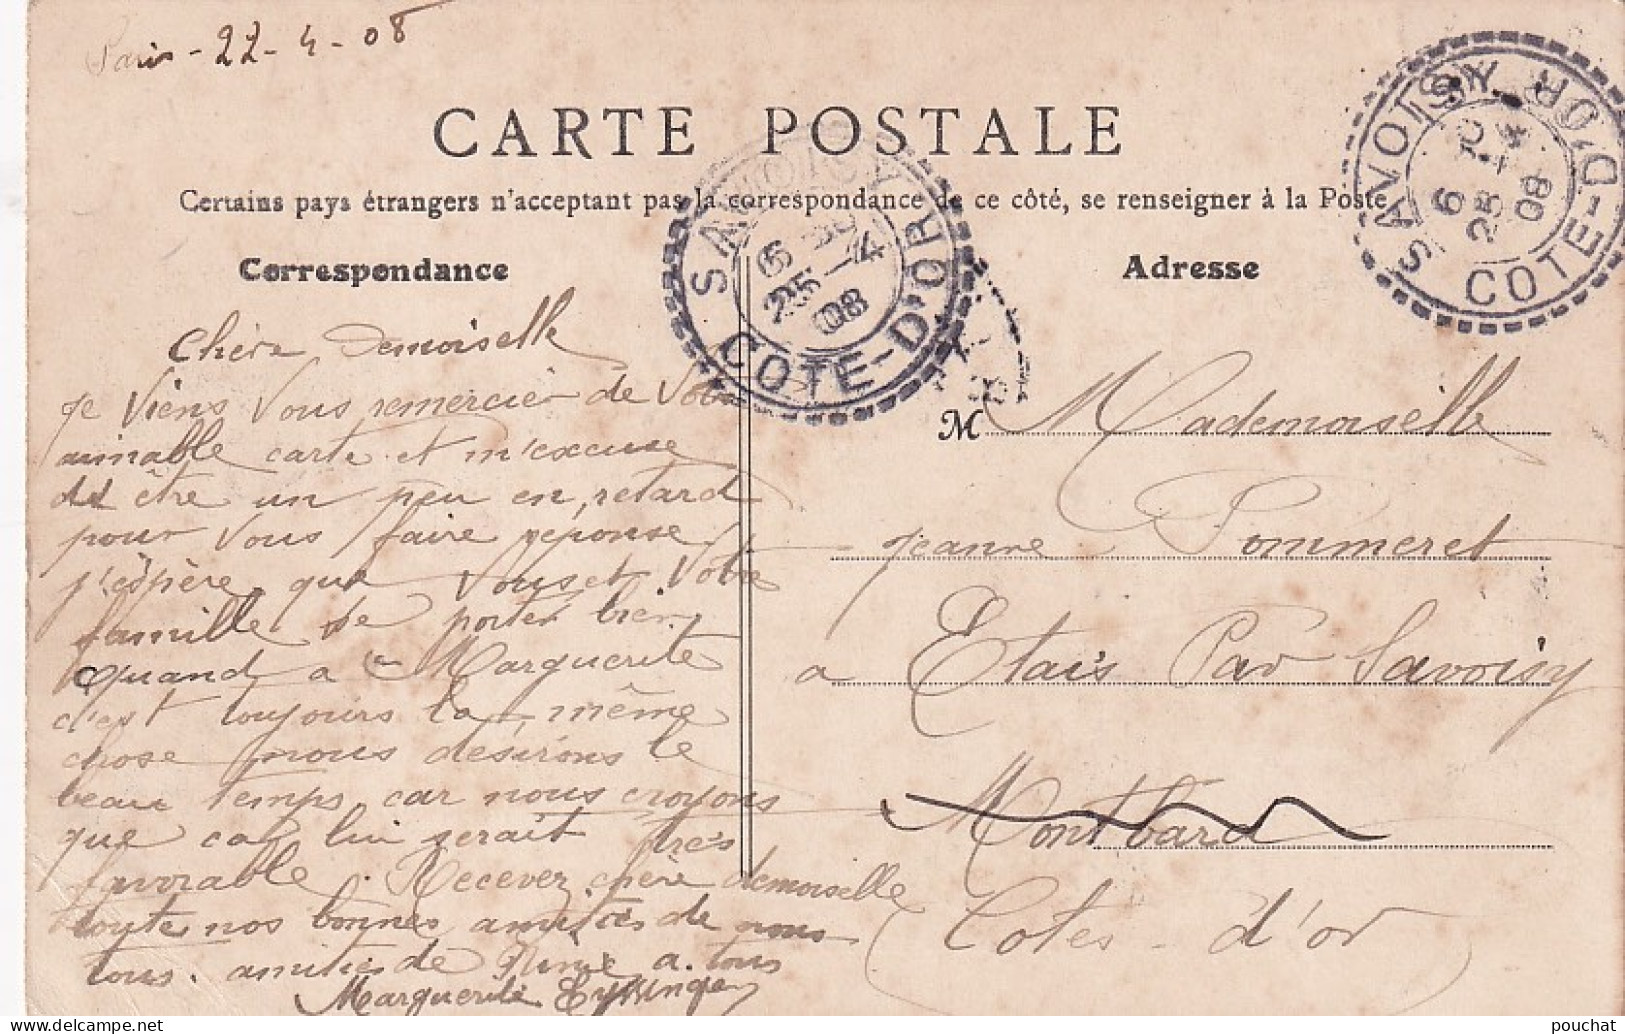 Paris - 22 - 4 - 08
CARTE POSTALE
Certains pays étrangers n'acceptant pas la correspondance de ce côté, se renseigner à la Poste
Correspondance
Adresse
SAVOISY
6
25 - 4
08
COTE-D'OR
SAVOISY
6
25 - 4
08
COTE-D'OR
Chère Demoiselle
Je viens vous remercier de votre
aimable carte et m'excuse
être un peu en retard
pour vous faire réponse.
j'éspère que vous et votre
famille se porter bien,
quand a Marguerite
c'est toujours la même
chose nous désirons le
beau temps car nous croyons
que ça lui serait très
favorable. Recever chère demoiselle
toute nos bonnes amitiés de nous
tous. amitiés de a tous
Marguerite
M Mademoiselle
Jeanne Pommeret
a Etais Par Savoisy
Montbard
Cotes - d'or
pouchat